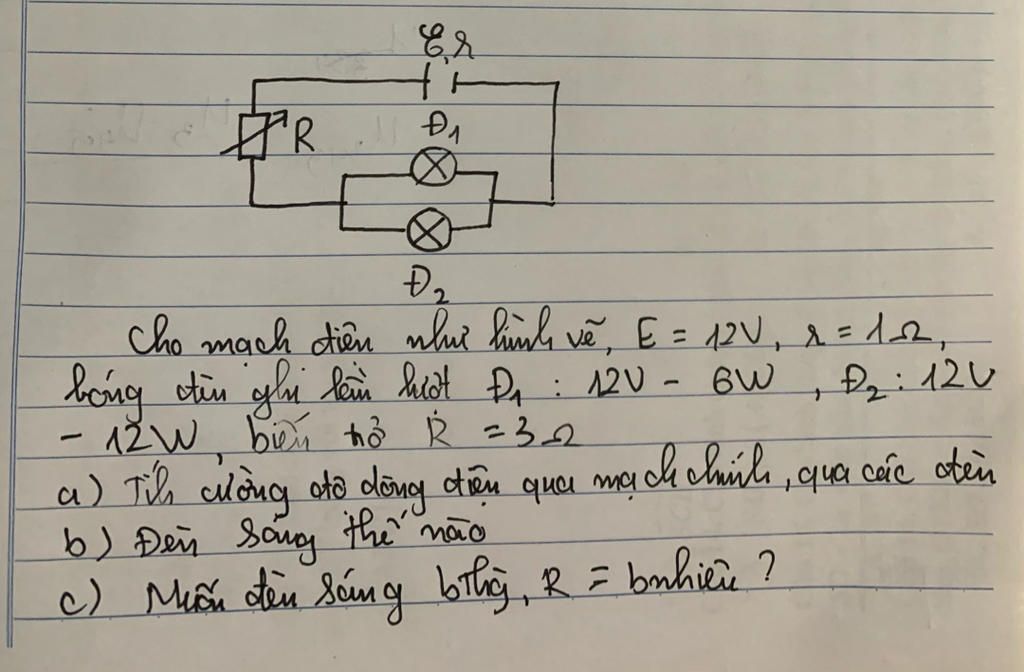 E, r
R
Đ1
Đ2
Cho mạch điện như hình vẽ, E = 12V, r = 1Ω,
bóng đèn ghi lần lượt Đ1 : 12V - 6W , Đ2 : 12V
- 12W, biến trở R = 3Ω
a) Tính cường độ dòng điện qua mạch chính, qua các đèn
b) Đèn sáng thế nào
c) Muốn đèn sáng bthg, R = bnhiêu ?